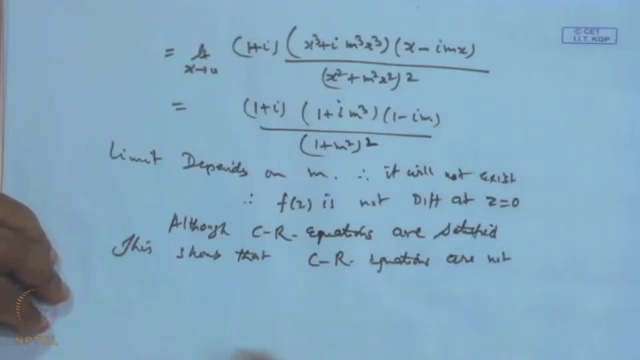 © CET
I.I.T. KGP
= lt x→0 (1+i) (x³+i m³x³)(x-imx) / (x²+m²x²)2
= (1+i) (1+im³)(1-im) / (1+m²)2
Limit Depends on m. ∴ it will not exist
∴ f(z) is not Diff at z=0
Although C-R- Equations are Satisfied
This shows that C-R. Equations are not
NPTEL